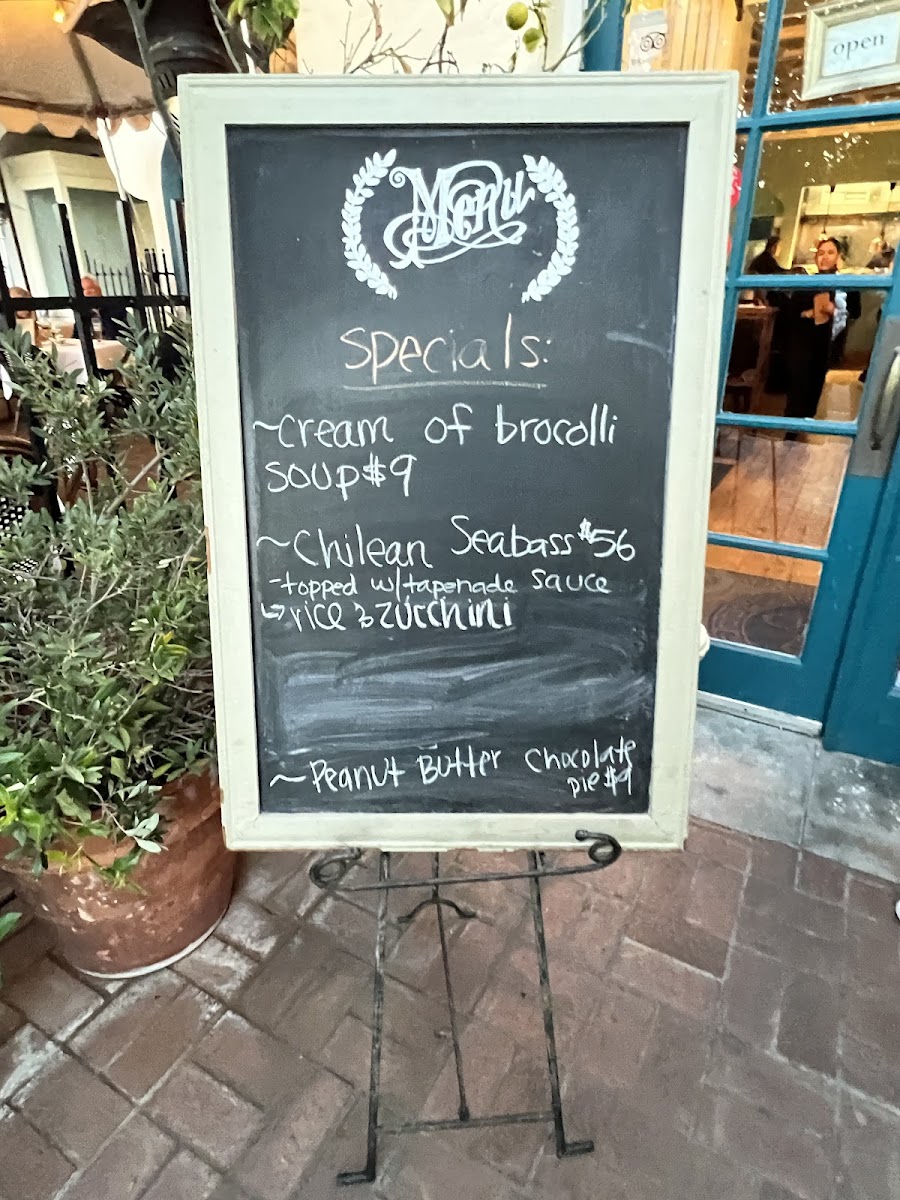 open
Menu
Specials:
~cream of brocolli
soup $9
~Chilean Seabass $56
-topped w/tapenade sauce
↳ rice & zucchini
~Peanut Butter Chocolate
pie $9